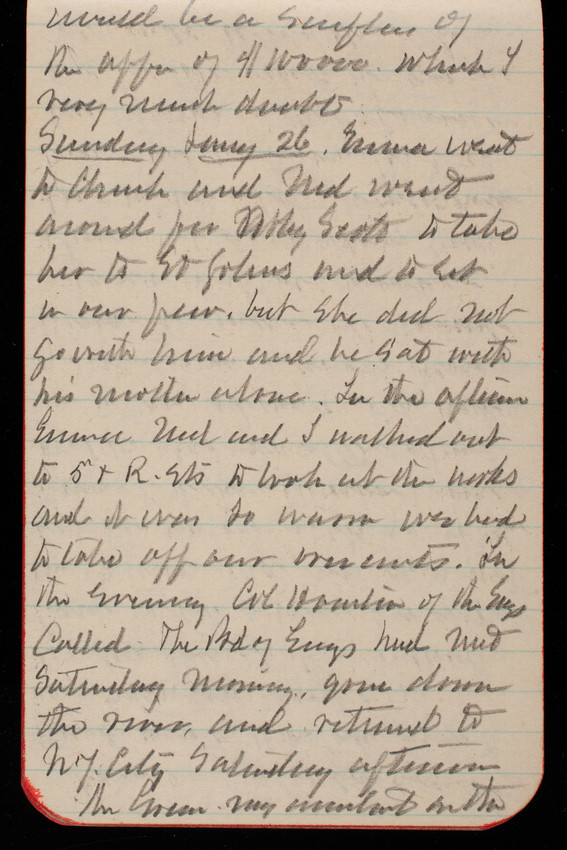 would be a surplus of
the appn of $100000. Which I
very much doubt
Sunday Jany 26. Emma went
to Church and Ned went
around for Abby to take
her to St Johns and to set
in our pew. but she did not
go with him and he sat with
his mother alone. In the afternn
Emma Ned and I walked out
to 5 & R. Sts to look at the works
and it was so warm we had
to take off our overcoats. In
the Evening Col Houston of the Engs
Called The Bd of Engs had met
Saturday morning, gone down
the river, and returned to
N.Y. City Saturday afternoon
Mr Green my assistant on the